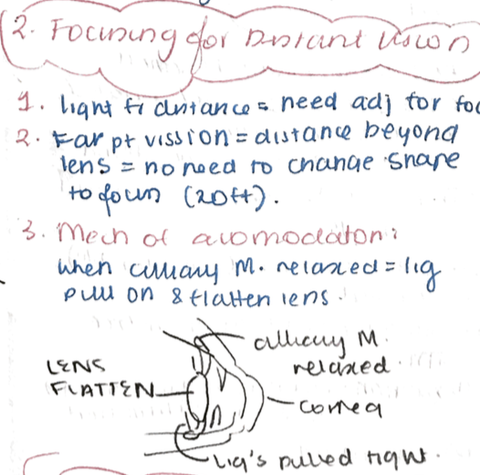 2. Focusing for Distant Vision
1. light fr distance = need adj for foc
2. Far pt vission = distance beyond
lens = no need to change shape
to focus (20ft).
3. Mech of accomodaton:
when ciliary M. relaxed = lig
pull on & flatten lens.
ciliary M.
relaxed
LENS
FLATTEN
cornea
Lig's pulled tight.